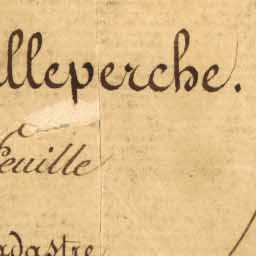 illeperche.
euille
adastre